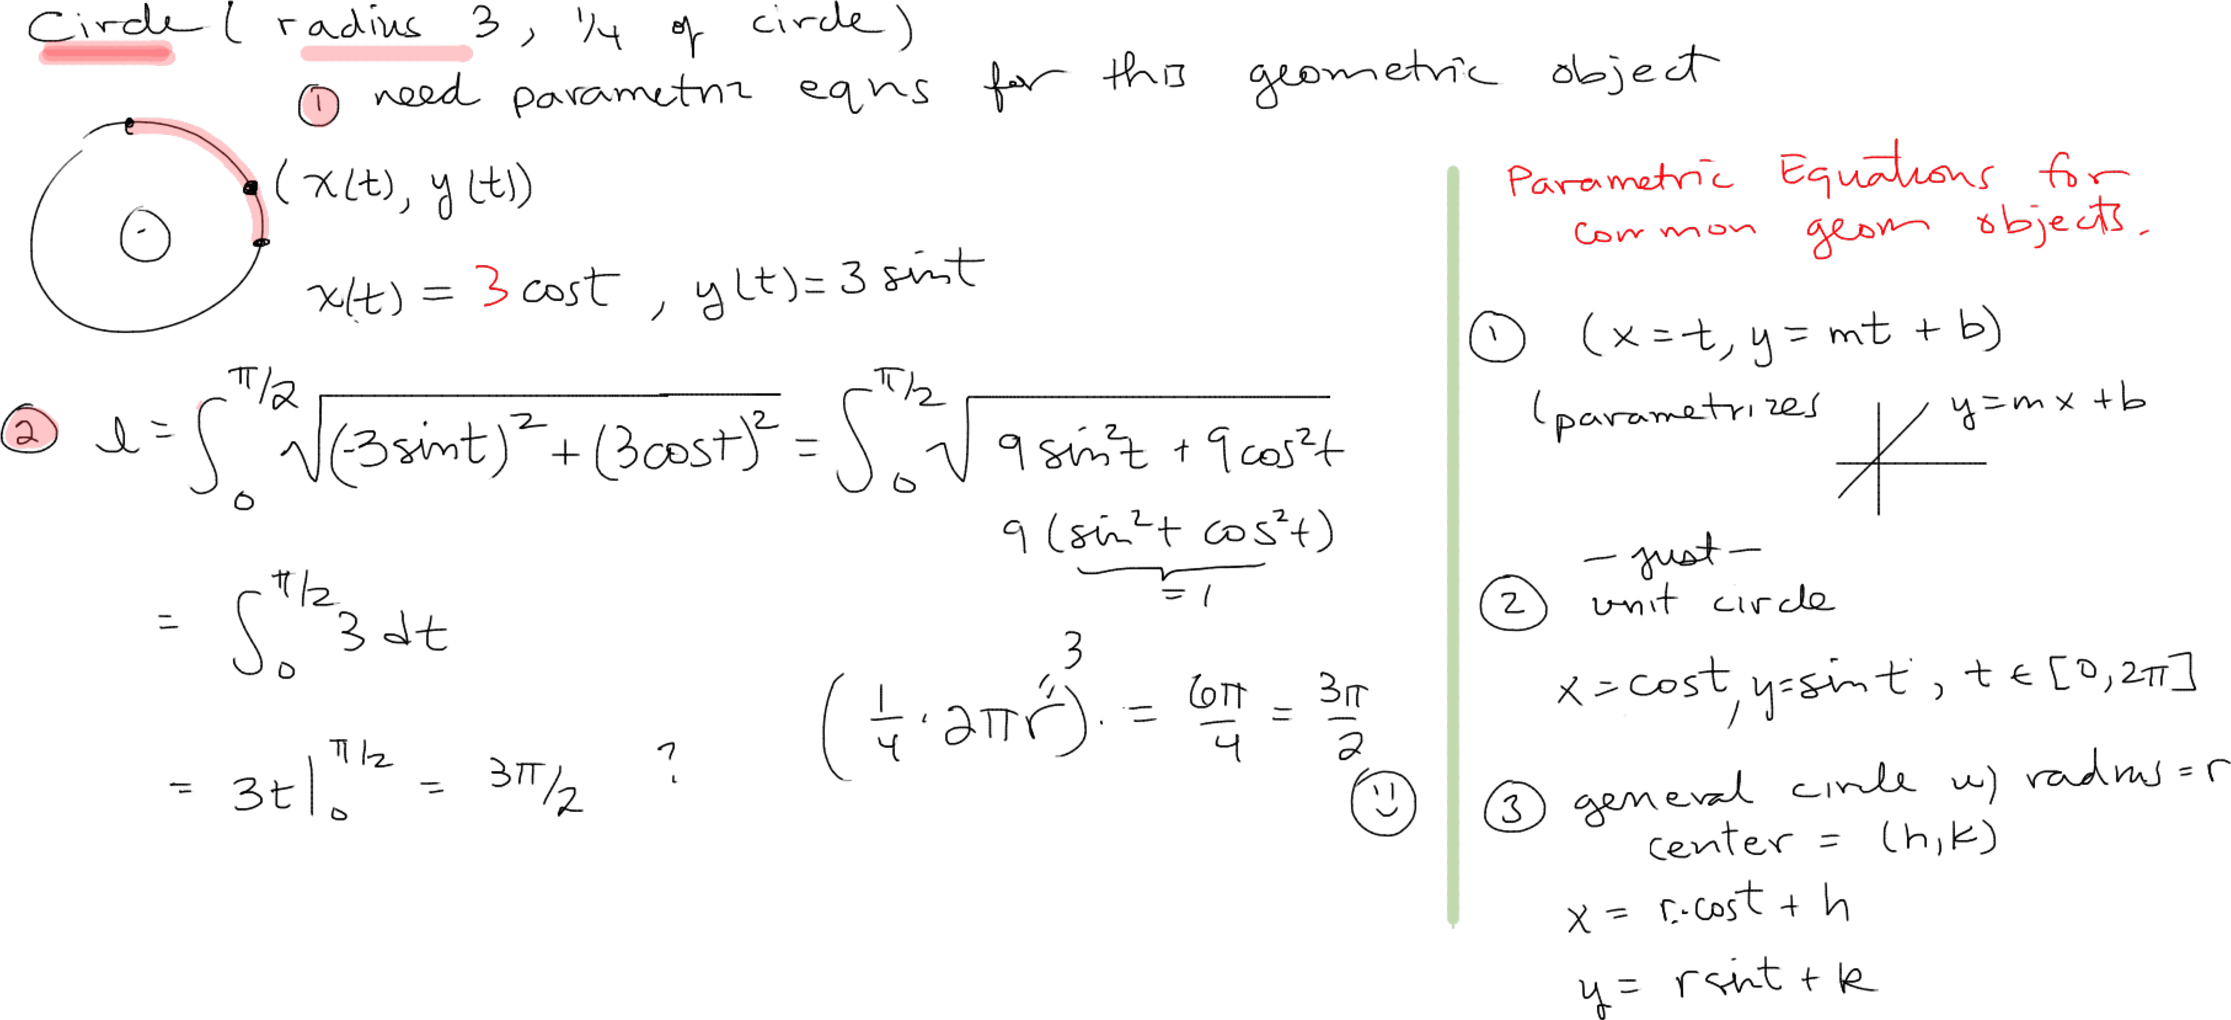 Circle ( radius 3, 1/4 of circle)
① need parametric eqns for this geometric object
(x(t), y(t))
x(t) = 3 cost, y(t) = 3 sint
② l = ∫₀^{π/2} √((-3sint)² + (3cost)²) = ∫₀^{π/2} √(9 sin²t + 9cos²t)
9 (sin²t cos²t)
= 1
= ∫₀^{π/2} 3 dt
= 3t|₀^{π/2} = 3π/2 ?
(1/4 · 2πr). = 6π/4 = 3π/2
3
Parametric Equations for
common geom objects.
① (x = t, y = mt + b)
(parametrizes y = mx + b
– just –
② unit circle
x = cost, y = sint, t ∈ [0, 2π]
③ general circle w/ radius = r
center = (h, k)
x = r·cost + h
y = rsint + k